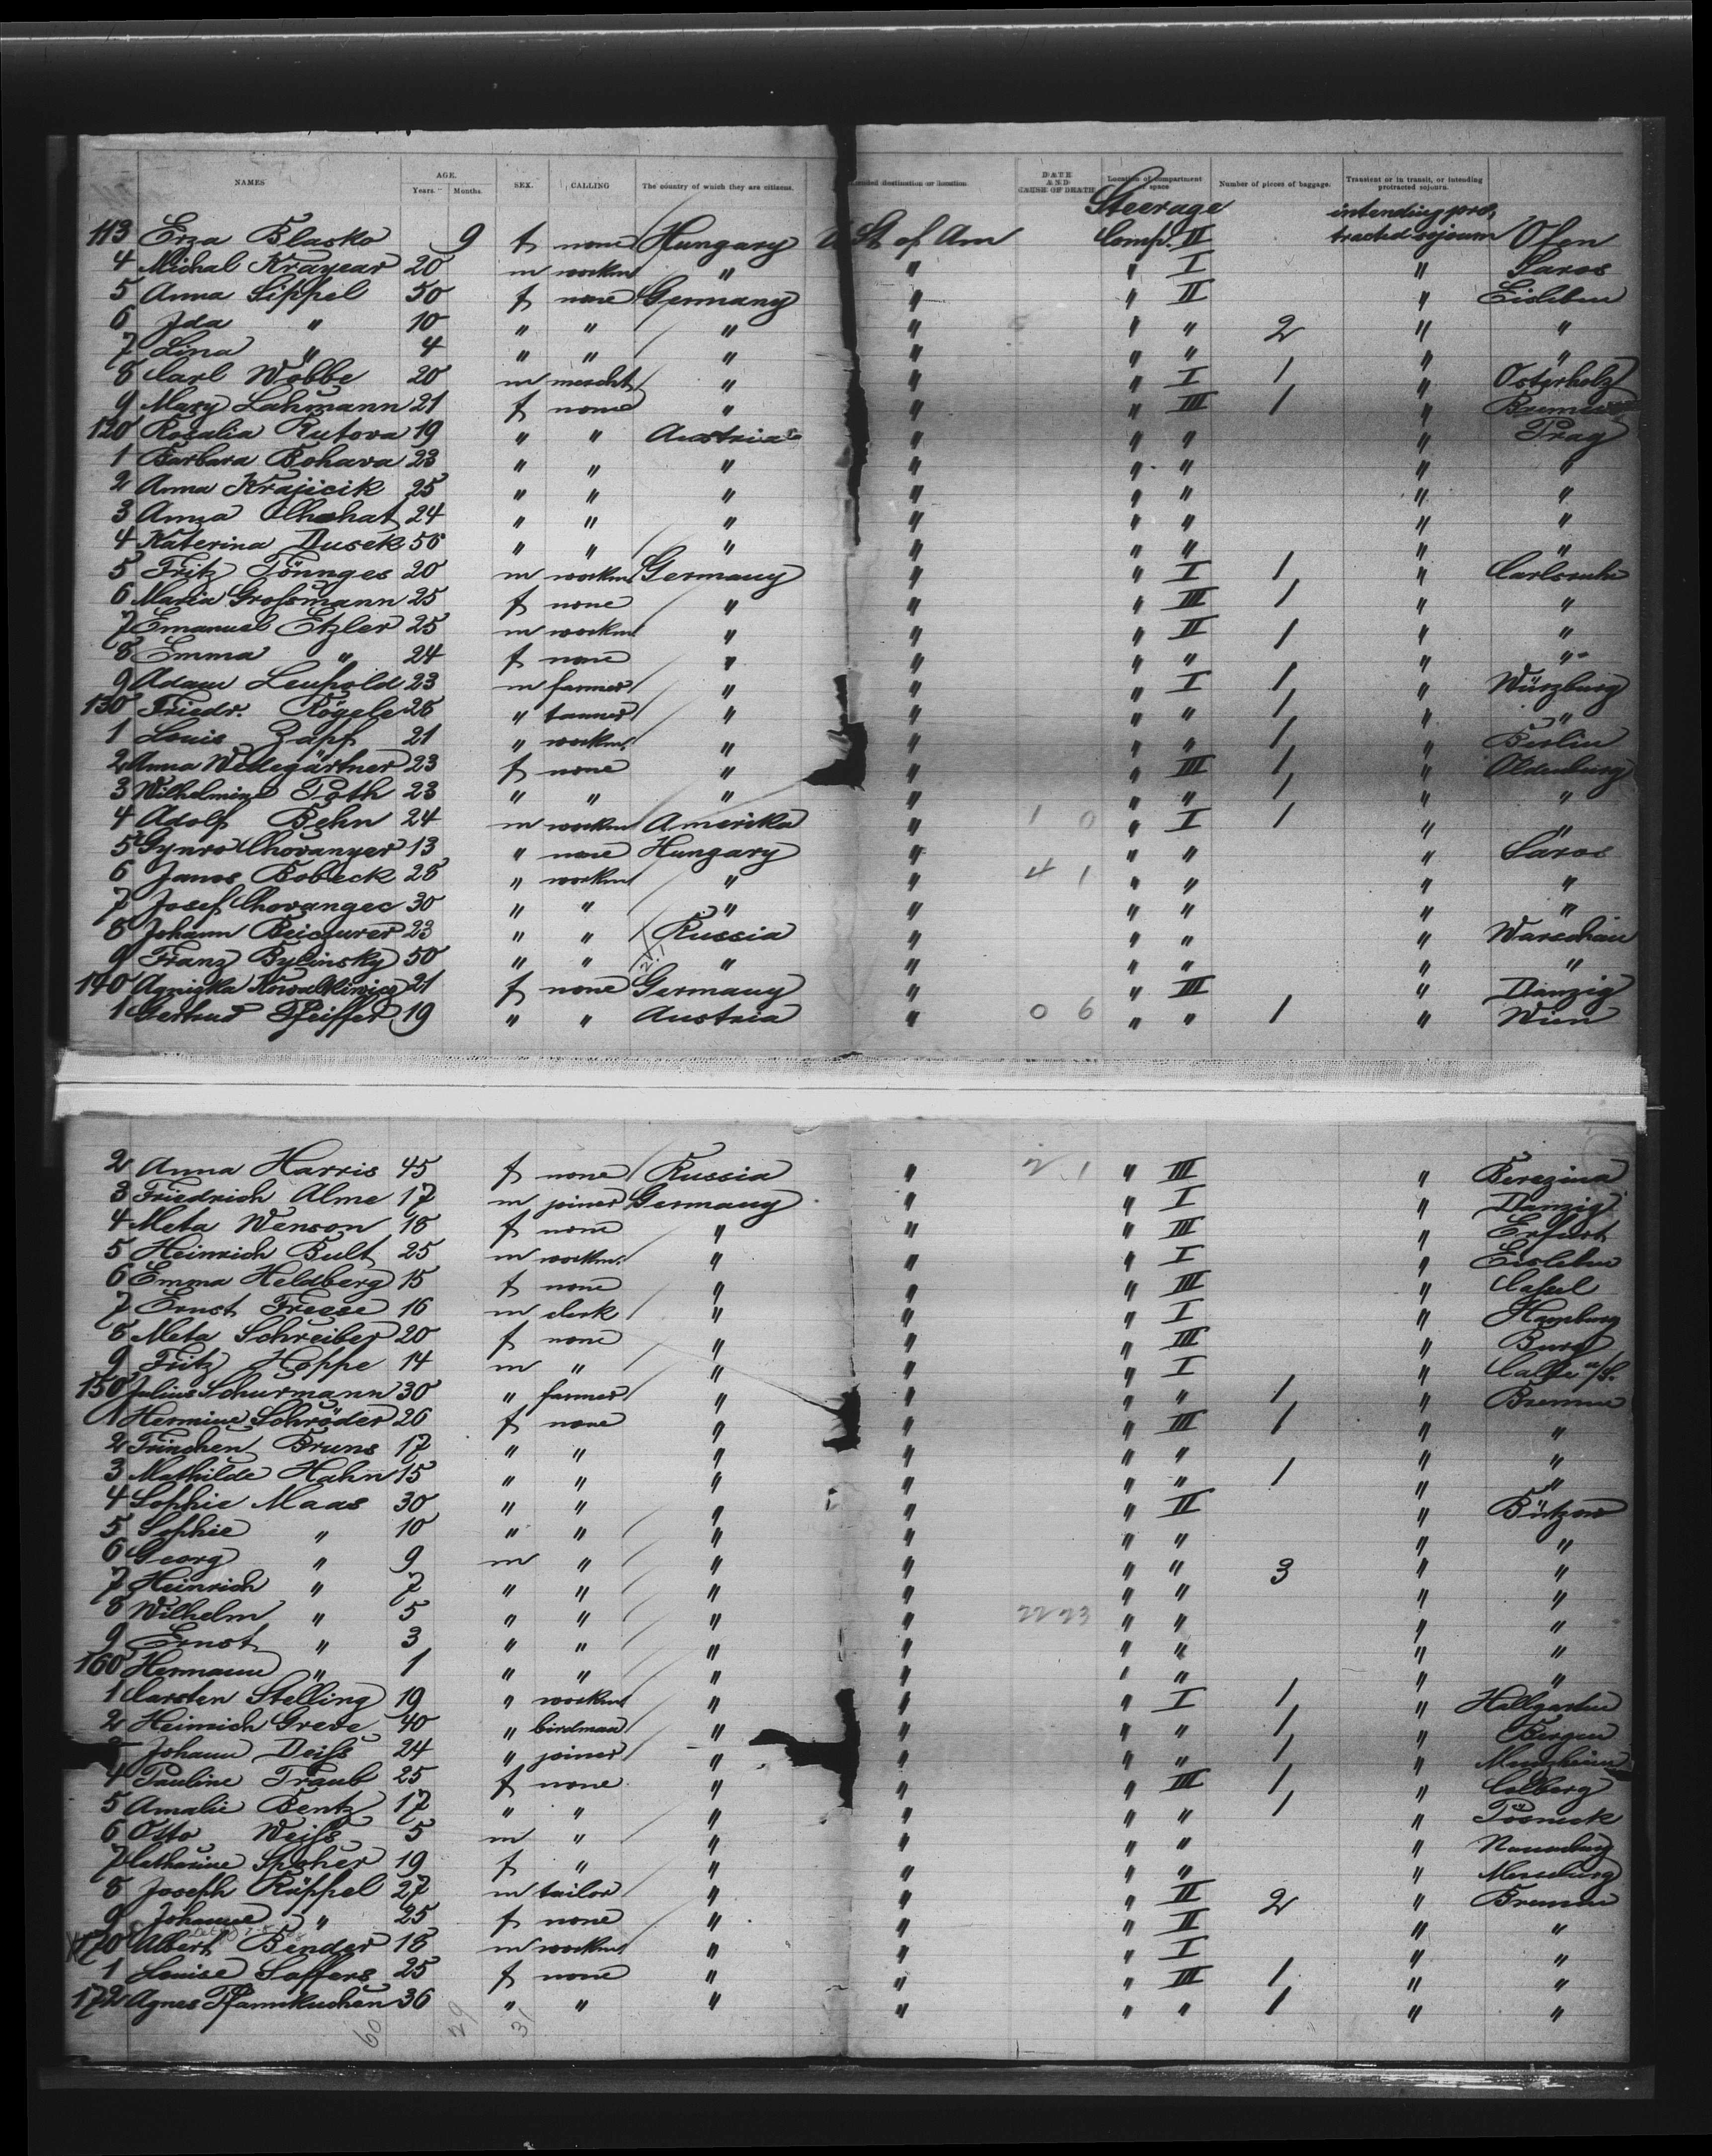 NAMES AGE. Years. Months. SEX. CALLING The country of which they are citizens. Intended destination or location. DATE AND CAUSE OF DEATH Location of compartment or space. Number of pieces of baggage. Transient or in transit, or intending protracted sojourn.
Steerage intending pro,
113 Erza Blasko 9 f none Hungary U St of Am Comp. II tracted sojourn Ofen
4 Michal 20 m workm " " " I " Saros
5 Anna Sippel 50 f none Germany " " II " Eisleben
6 Ida " 10 " " " " " " 2 " "
7 Lina " 4 " " " " " " " "
8 Carl Wobbe 20 m mercht " " " I 1 " Osterholz
9 Mary Lahmann 21 f none " " " III 1 " Bremen
120 Rosalia Rutova 19 " " Austria " " " " Prag
1 Barbara Bohava 23 " " " " " " " "
2 Anna Krajicik 25 " " " " " " " "
3 Anna 24 " " " " " " " "
4 Katerina Dusek 50 " " " " " " " "
5 Fritz Tönnges 20 m workm Germany " " I 1 " Carlsruhe
6 Maria Großmann 25 f none " " " III 1 " "
7 Emanuel Etzler 25 m workm " " " II 1 " "
8 Emma " 24 f none " " " " " "
9 Adam Leupold 23 m farmer " " " I 1 " Würzburg
130 Friedr. Rögele 28 " tanner " " " " 1 " "
1 Louis Zapf 21 " workm. " " " " 1 " Berlin
2 Anna Wedegärtner 23 f none " " " III 1 " Oldenburg
3 Wilhelmine Poth 23 " " " " " " 1 " "
4 Adolf Behn 24 m workm Amerika " 1 0 " I 1 " "
5 Chovanyer 13 " none Hungary " " " " Saros
6 Janos Bobeck 28 " workm " " 4 1 " " " "
7 Josef Chovangec 30 " " " " " " " "
8 Johann 23 " " Russia " " " " Warschau
9 Franz Bylinsky 50 " " " " " " " "
140 Agnizka 21 f none Germany " " III " Danzig
1 Gertrud Pfeiffer 19 " " Austria " 0 6 " " 1 " Wien
2 Anna Harris 45 f none Russia " 2 1 " III " Berezina
3 Friedrich Alme 17 m joiner Germany " " I " Danzig
4 Meta Wenson 18 f none " " " III " Erfurt
5 Heinrich Bult 25 m workm. " " " I " Eisleben
6 Emma Heldberg 15 f none " " " III " Cassel
7 Ernst Freese 16 m clerk " " " I " Hamburg
8 Meta Schreiber 20 f none " " " III " Burg
9 Fritz Hoppe 14 m " " " " I " Calbe a/S.
150 Julius Schurmann 30 " farmer " " " " 1 " Bremen
1 Hermine Schröder 26 f none " " " III 1 " "
2 Trinchen Bruns 17 " " " " " " " "
3 Mathilde Hahn 15 " " " " " " 1 " "
4 Sophie Maas 30 " " " " " II " Bützow
5 Sophie " 10 " " " " " " " "
6 Georg " 9 m " " " " " 3 " "
7 Heinrich " 7 " " " " " " " "
8 Wilhelm " 5 " " " " 22 23 " " " "
9 Ernst " 3 " " " " " " " "
160 Hermann " 1 " " " " " " " "
1 Carsten Stelling 19 " workm " " " I 1 " Hallgarten
2 Heinrich Greve 40 " birdman " " " " 1 " Bergen
Johann Deiß 24 " joiner " " " " 1 " Mannheim
4 Pauline Traub 25 f none " " " III 1 " Colberg
5 Amalie Bentz 17 " " " " " " 1 " Pösneck
6 Otto Weiß 5 m " " " " " " Naumburg
7 Catharine Spoher 19 f " " " " " " Merseburg
8 Joseph Rüppel 27 m tailor " " " II 2 " Bremen
9 Johanne " 25 f none " " " II " "
170 Albert Bender 18 m workm " " " I " "
1 Louise Saffers 25 f none " " " III 1 " "
172 Agnes Pfannkuchen 36 " " " " " " 1 " "
60 29 31